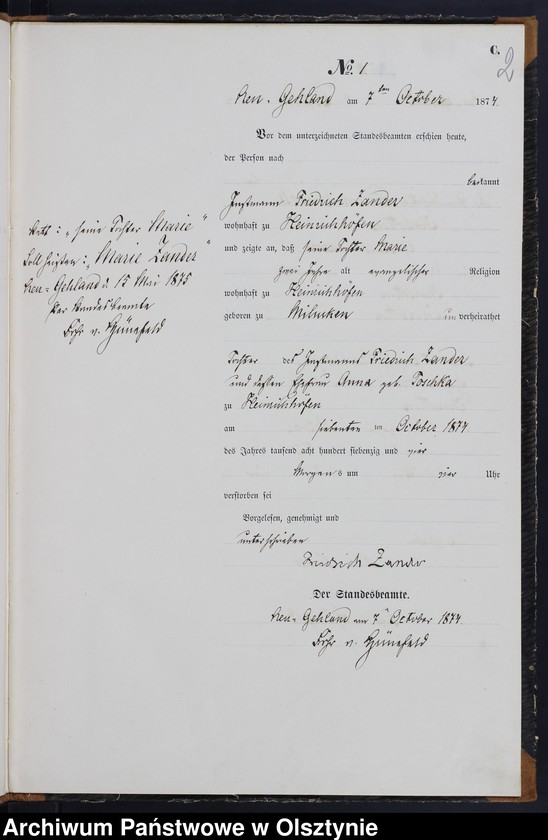 C.
2
No. 1.
Neu-Gehland am 7ten October 1874.
Vor dem unterzeichneten Standesbeamten erschien heute,
der Person nach
bekannt
Instmann Friedrich Zander
wohnhaft zu Heinrichhöfen
und zeigte an, daß seine Tochter Marie
zwei Jahre alt evangelischer Religion
wohnhaft zu Heinrichhöfen
geboren zu Milucken unverheirathet
Tochter des Instmanns Friedrich Zander
und dessen Ehefrau Anna geb. Toschka
zu Heinrichhöfen
am siebenten ten October 1874
des Jahres tausend acht hundert siebenzig und vier
Morgens um vier Uhr
verstorben sei
Vorgelesen, genehmigt und
unterschrieben
Friedrich Zander
Der Standesbeamte.
Neu-Gehland am 7 October 1874.
Frhr v.
"seine Tochter Marie"
soll heißen: "Marie Zander"
Neu-Gehland d 15 Mai 1875
Der Standesbeamte
Frhr v.
Archiwum Państwowe w Olsztynie